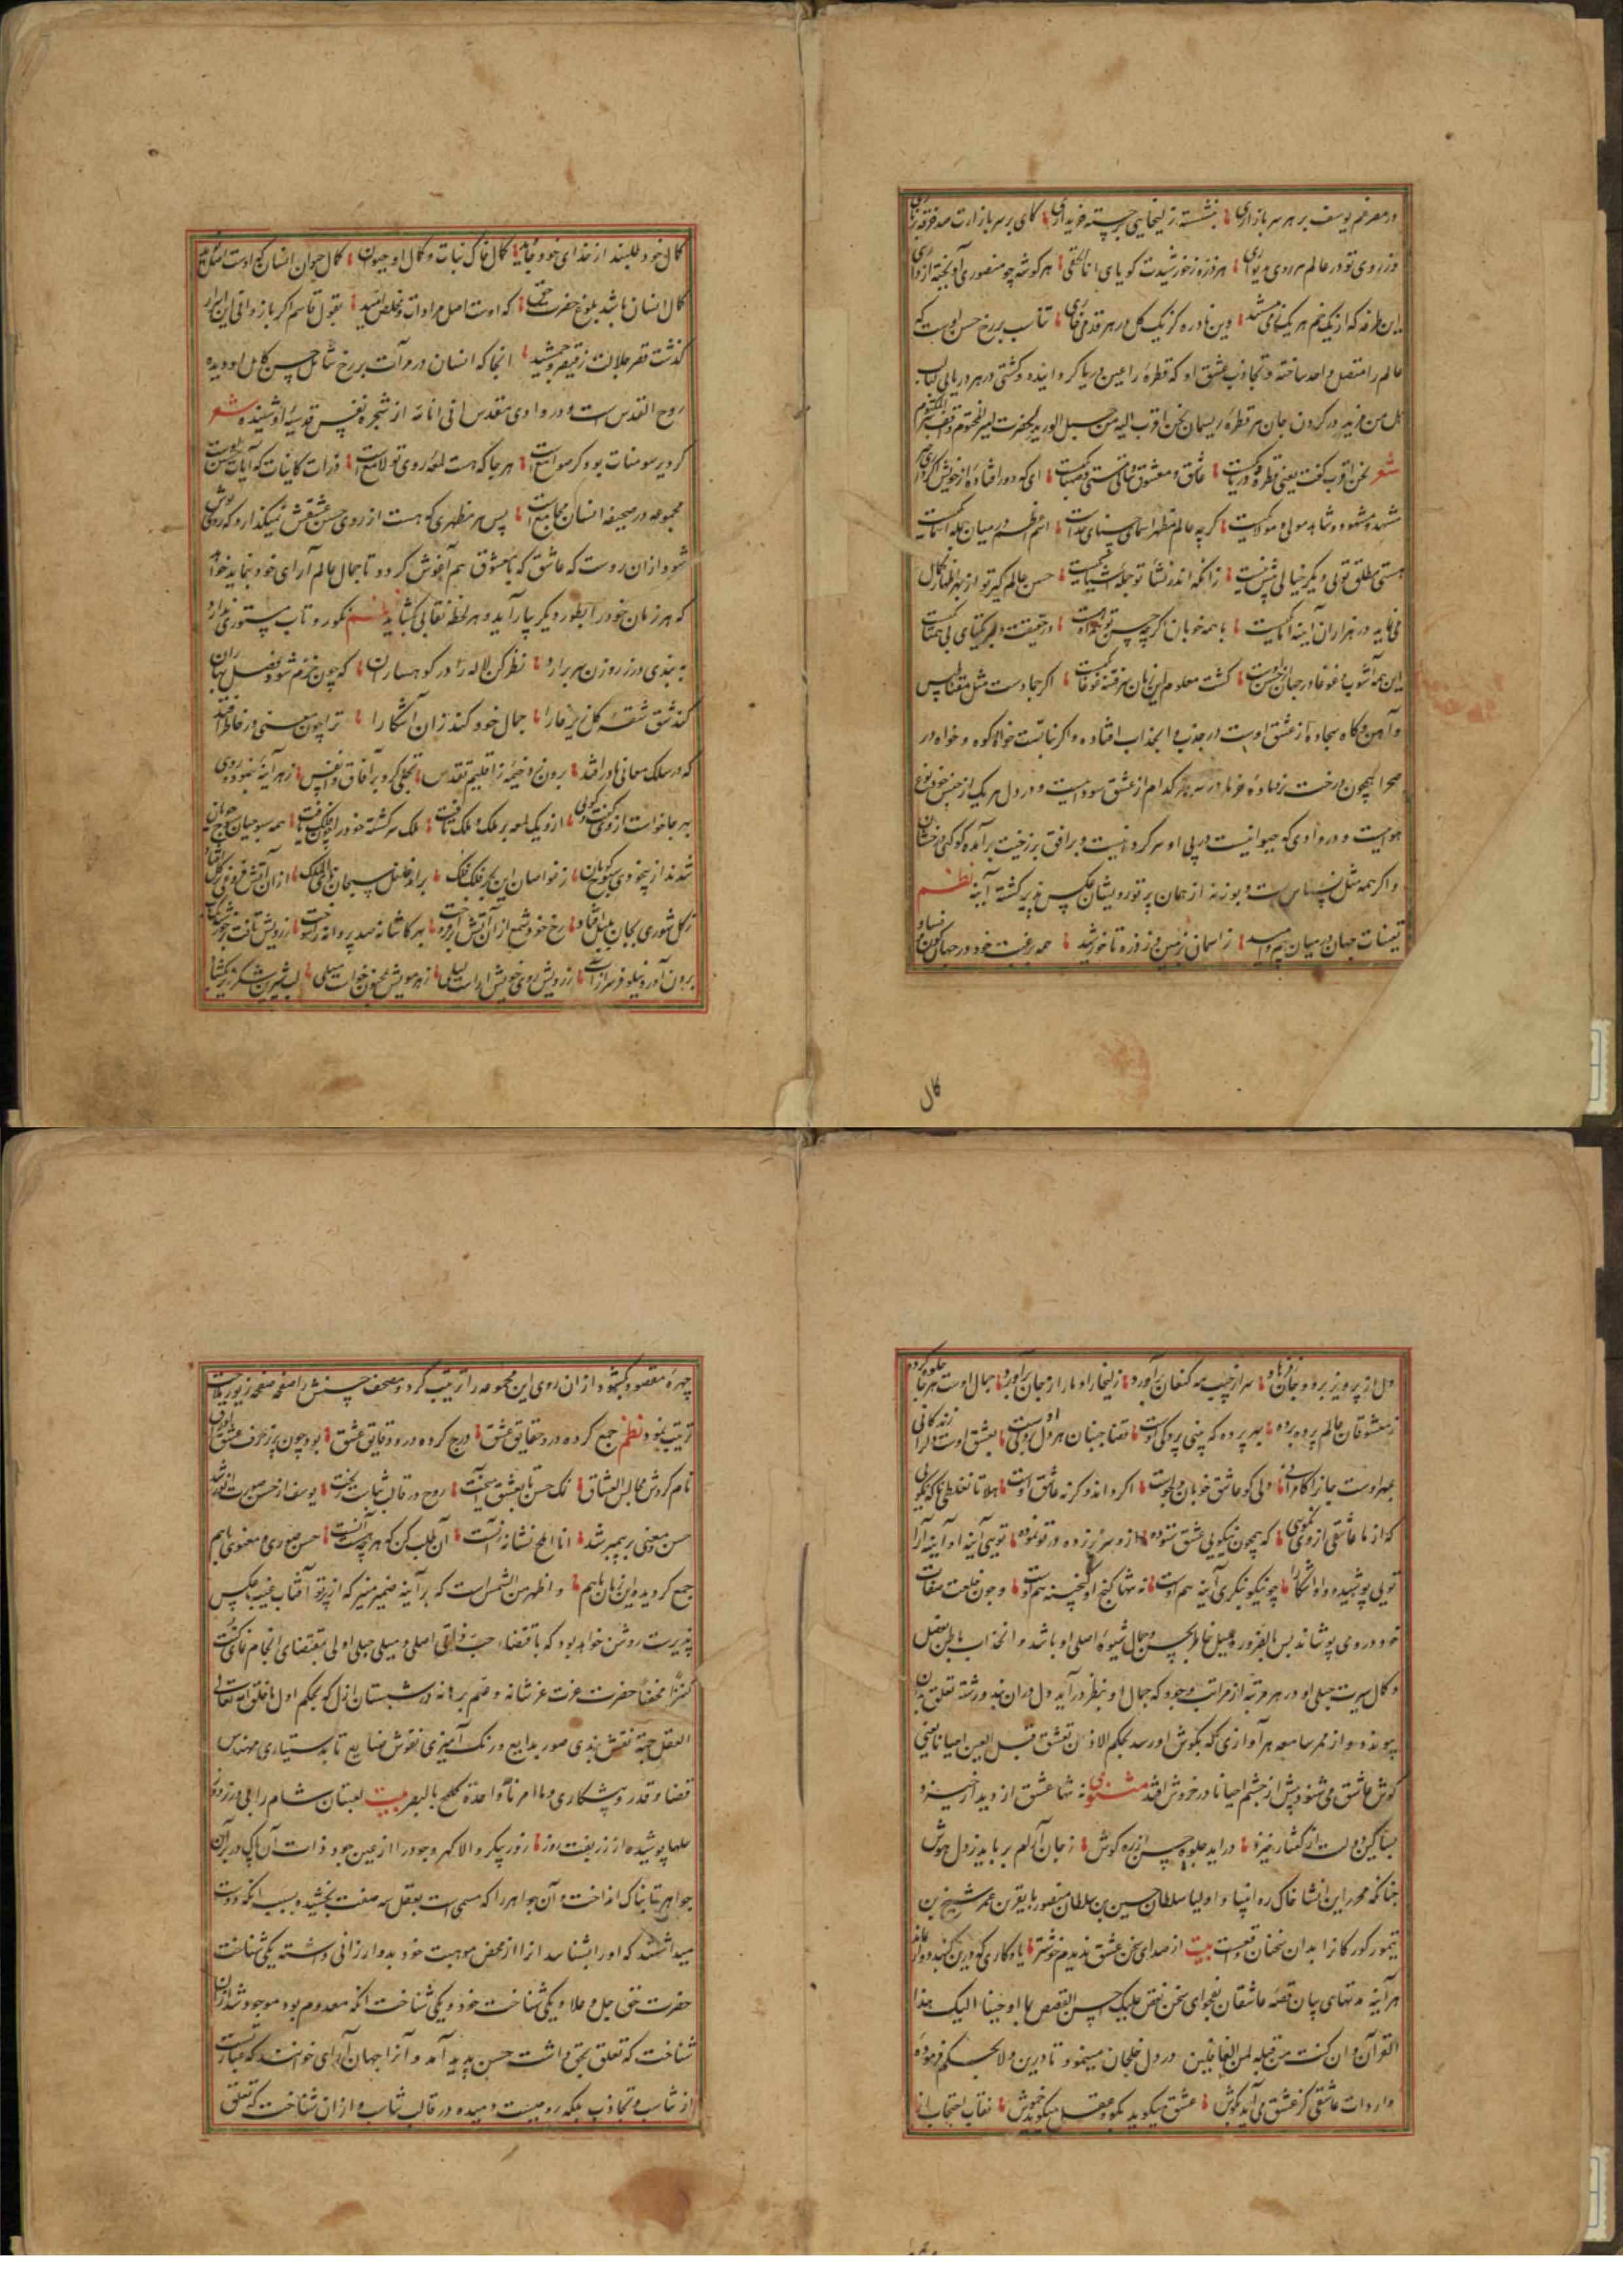 در مصر غم یوسف بر هر سر بازاری بنشسته زلیخایی برجسته خریداری کای بر سر بازارت صد خرقه
وز روی تو در عالم هر روی بدیواری هر ذره ز خورشیدت کویای انا الحقی هر کوشه چو منصوری آویخته از داری
این طرفه که از یک خم هر یک ز می مستند وین نادره کز یک کل در هر قدمی خاری تناسب بر رخ حسن اوست که
عالم را متصل واحد ساخته و تجاذب عشق او که قطره را عین دریا کردانیده و کشتی در هر دریایی
هل من مزید در کردن جان هر قطره ریسمان نحن اقرب الیه من حبل الورید
شعر نحن اقرب کفت یعنی قطره و دریا یکیست عاشق و معشوق و ساقی مستی و صهبا یکیست ای که دور افتاده از خویش
مشهد و مشهود و شاهد مولی و مولا یکیست کرچه عالم مظهر اسمای حسنای خداست اسم اعظم در میان جمله اسما یکیست
هستی مطلق تویی دیکر خیالی بیش نیست زانکه اندر نشأ تو جمله اشیا یکیست حسن عالم کیر تو از بهر اظهار کمال
می نماید در هزاران آینه اما یکیست با همه خوبان اکرچه حسن تو همراه است در حقیقت دلبر یکتای بی همتا یکیست
این همه آشوب و غوغا در جهان از حسن اوست کشت معلوم این زمان سر فتنه غوغا یکیست اکر جماد است مثل مقناطیس
و آهن و کاه بیجاده از عشق اوست در جذب و انجذاب افتاده و اکر نباتست خواه کوه و خواه در
صحرا همچون درخت نر و ماده خرما در سر هر کدام از عشق سوداییست و در دل هر یک از جنس خود نوع
هواییست و در وادی که حیوانیست در پی او سرکردانیست و بر افق برزخیت برآمده کوکبی درخشان
و اکر همه مثل نسناس است و بوزنه از همان پرتو رویشان عکس پذیر کشته آینه نظم
تعینات جهان در میان بیم و امید ز اسمان و زمین و ز ذره تا خورشید همه رغبت خود در جهان
کال
کمال خود طلبند از خدای خود جاوید کمال خاک نبات و کمال او حیوان کمال حیوان انسان که اوست
کمال انسان باشد بلوغ حضرت حق که اوست اصل مرادات و مخلص امید بقول قاسم اکر باز دانی این اسرار
کذشت قصر جلالت ز قیصر و جمشید انجا که انسان در مرآت بر رخ شامل حسن کامل او دیده
روح القدس است و در وادی مقدس انی انا الله از شجره نفس قدسیه او شنیده شعر
کر دیر سومنات بود کر صوامع است هر جا که هست لمعه روی تو لامع است ذرات کاینات که آیات حسن تست
مجموعه در صحیفه انسان جامع است پس هر مظهری که هست از روی حسن عشقش نمیکذارد که روپوش
شود از آن روست که عاشق که با معشوق هم آغوش کردد تا جمال عالم آرای خود نماید خواهد
که هر زمان خود را بطور دیکر بیاراید و هر لحظه نقابی بکشاید نظم نکورو تاب مستوری ندارد
به بندی در ز روزن سر برآرد نظر کن لاله را در کوهساران که چون خرم شود فصل بهاران
کند شق شقه کل زیر خارا جمال خود کند زان آشکارا ترا چون معنیی در خاطر افتد
که در سلک معانی نادر افتد برون زد خیمه ز اقلیم تقدس تجلی کرد بر آفاق و انفس ز هر آینه بنمود روی
بهر جا خواست از وی کفت و کویی ازو یک لمعه بر ملک و ملک تافت ملک سرکشته خود را چون فلک یافت همه سبوحیان سبوح جویان
شدند از بیخودی سبوح کویان ز غواصان این بحر فلک فلک برآمد غلغل سبحان ذی الملک از آن آتش فروغی بر کل افتاد
ز کل شوری بجان بلبل افتاد رخ خود شمع از آن آتش افروخت بهر کاشانه صد پروانه را سوخت ز رویش تافت بر خورشید یک تاب
برون آورد نیلوفر سر از آب ز رویش روی خویش آراست لیلی ز هر مویش مجنون خواست میلی لب شیرین بشکر ریز بکشاد
دل از پرویز برد و جان ز فرهاد سر از جیب مه کنعان برآورد زلیخا را دمار از جان برآورد جمال اوست هر جا جلوه کرده
ز معشوقان عالم بسته پرده بهر پرده که بینی پردکی اوست قضا جنبان هر دل بردکی اوست بعشق اوست دل را زندکانی
بمهر اوست جانرا کامرانی دلی کو عاشق خوبان دلجوست اکر داند و کر نه عاشق اوست هلا تا نغلطی نا که نکویی
که از ما عاشقی از وی نکویی که همچون نیکویی عشق ستوده ازو سر بر زده در تو نموده تویی آینه او آینه آرا
تویی پوشیده و او آشکارا چو نیکو بنکری آینه هم اوست نه تنها کنج او کنجینه هم اوست و چون خلعت صفات
خود در وی پوشاند پس بالضروره میل خاطر بحسن و جمال شیوه اصلی او باشد و انجذاب باطن بفضل
و کمال سیرت جبلی او در هر مرتبه از مراتب وجود که جمال او بنظر درآید دل در آن بندد و رشته تعلق بدان
پیوندد و از ممر سامعه هر آوازی که بکوش او رسد بحکم الاذن تعشق قبل العین احیانا یعنی
کوش عاشق می شود پیش از چشم احیانا در خروش افتد مثنوی نه تنها عشق از دیدار خیزد
بسا کین دولت از کفتار خیزد در آید جلوه حسن از ره کوش ز جان آرام برباید ز دل هوش
چنانکه محرر این انشا خاک ره انبیا و اولیا سلطان حسین بن سلطان منصور بن بایقرا بن عمر شیخ بن
تیمور کورکان را بدان سخنان واقعست بیت از صدای سخن عشق ندیدم خوشتر یادکاری که درین کنبد دوار بماند
هر آینه مدتهای بیان قصه عاشقان بفحوای سخن نحن نقص علیک احسن القصص بما اوحینا الیک هذا
القرآن و ان کنت من قبله لمن الغافلین در دل خلجان مینمود تا درین ولا بحکم فرموده
واردات عاشقی کز عشق می آید بکوش عشق میکوید بکو و عقل میکوید خموش نقاب احتجاب از
چهره مقصود بکشود از آن روی این مجموعه را ترتیب کرد و مصحف حسنش را صفحه صفحه زیور
تزیین نمود نظم جمع کرده درو حقایق عشق درج کرده درو دقایق عشق بود چون پر ز حرف عشق اوراق
نام کردش مجالس العشاق نمک حسن تا بعشق بیخت روح در قالب شباب بریخت یوسف از حسن صورت افروز شد
حسن معنی بپیمبر شد انا املح نشانه آنست آن طلب کن که هر چه هست آنست حسن صوری و معنوی با هم
جمع کردیده این زمان با هم و اظهر من الشمس است که بر آینه ضمیر منیر که از پرتو آفتاب غیب عکس
پذیرست روشن خواهد بود که باقتضاء حب ذاتی اصلی و میل جبلی اولی بمقتضای انجام نمای کنت
کنزا مخفیا حضرت عزت عز شانه و عظم برهانه در شبستان ازل که بحکم اول ما خلق الله تعالی
العقل جهة نقش بندی صور بدایع و رنک آمیزی نقوش صنایع تا بدستیاری مهندس
قضا و قدر و پیشکاری و ما امرنا الا واحدة کلمح بالبصر بیت لعبتان شام را بی درزدوز
حلها پوشیده از زربفت روز زورپیکر والا کهر وجود را از عین جود ذات آن پاک در برآن
جواهر تابناک انداخت و آن جواهر را که مسمی است بعقل سه صفت بخشیده بسبب آنکه دوست
میداشتند که او را بشناسد آنرا از محض موهبت خود بدو ارزانی داشته یکی شناخت
حضرت حق جل و علا و یکی شناخت خود و یکی شناخت آنکه معدوم بود موجود شد از آن
شناخت که تعلق بحق داشت حسن پدید آمد و آنرا جهان آرای خوانند که عبارتست
از تناسب و تجاذب بلکه روحیست دمیده در قالب تناسب و از آن شناخت که تعلق